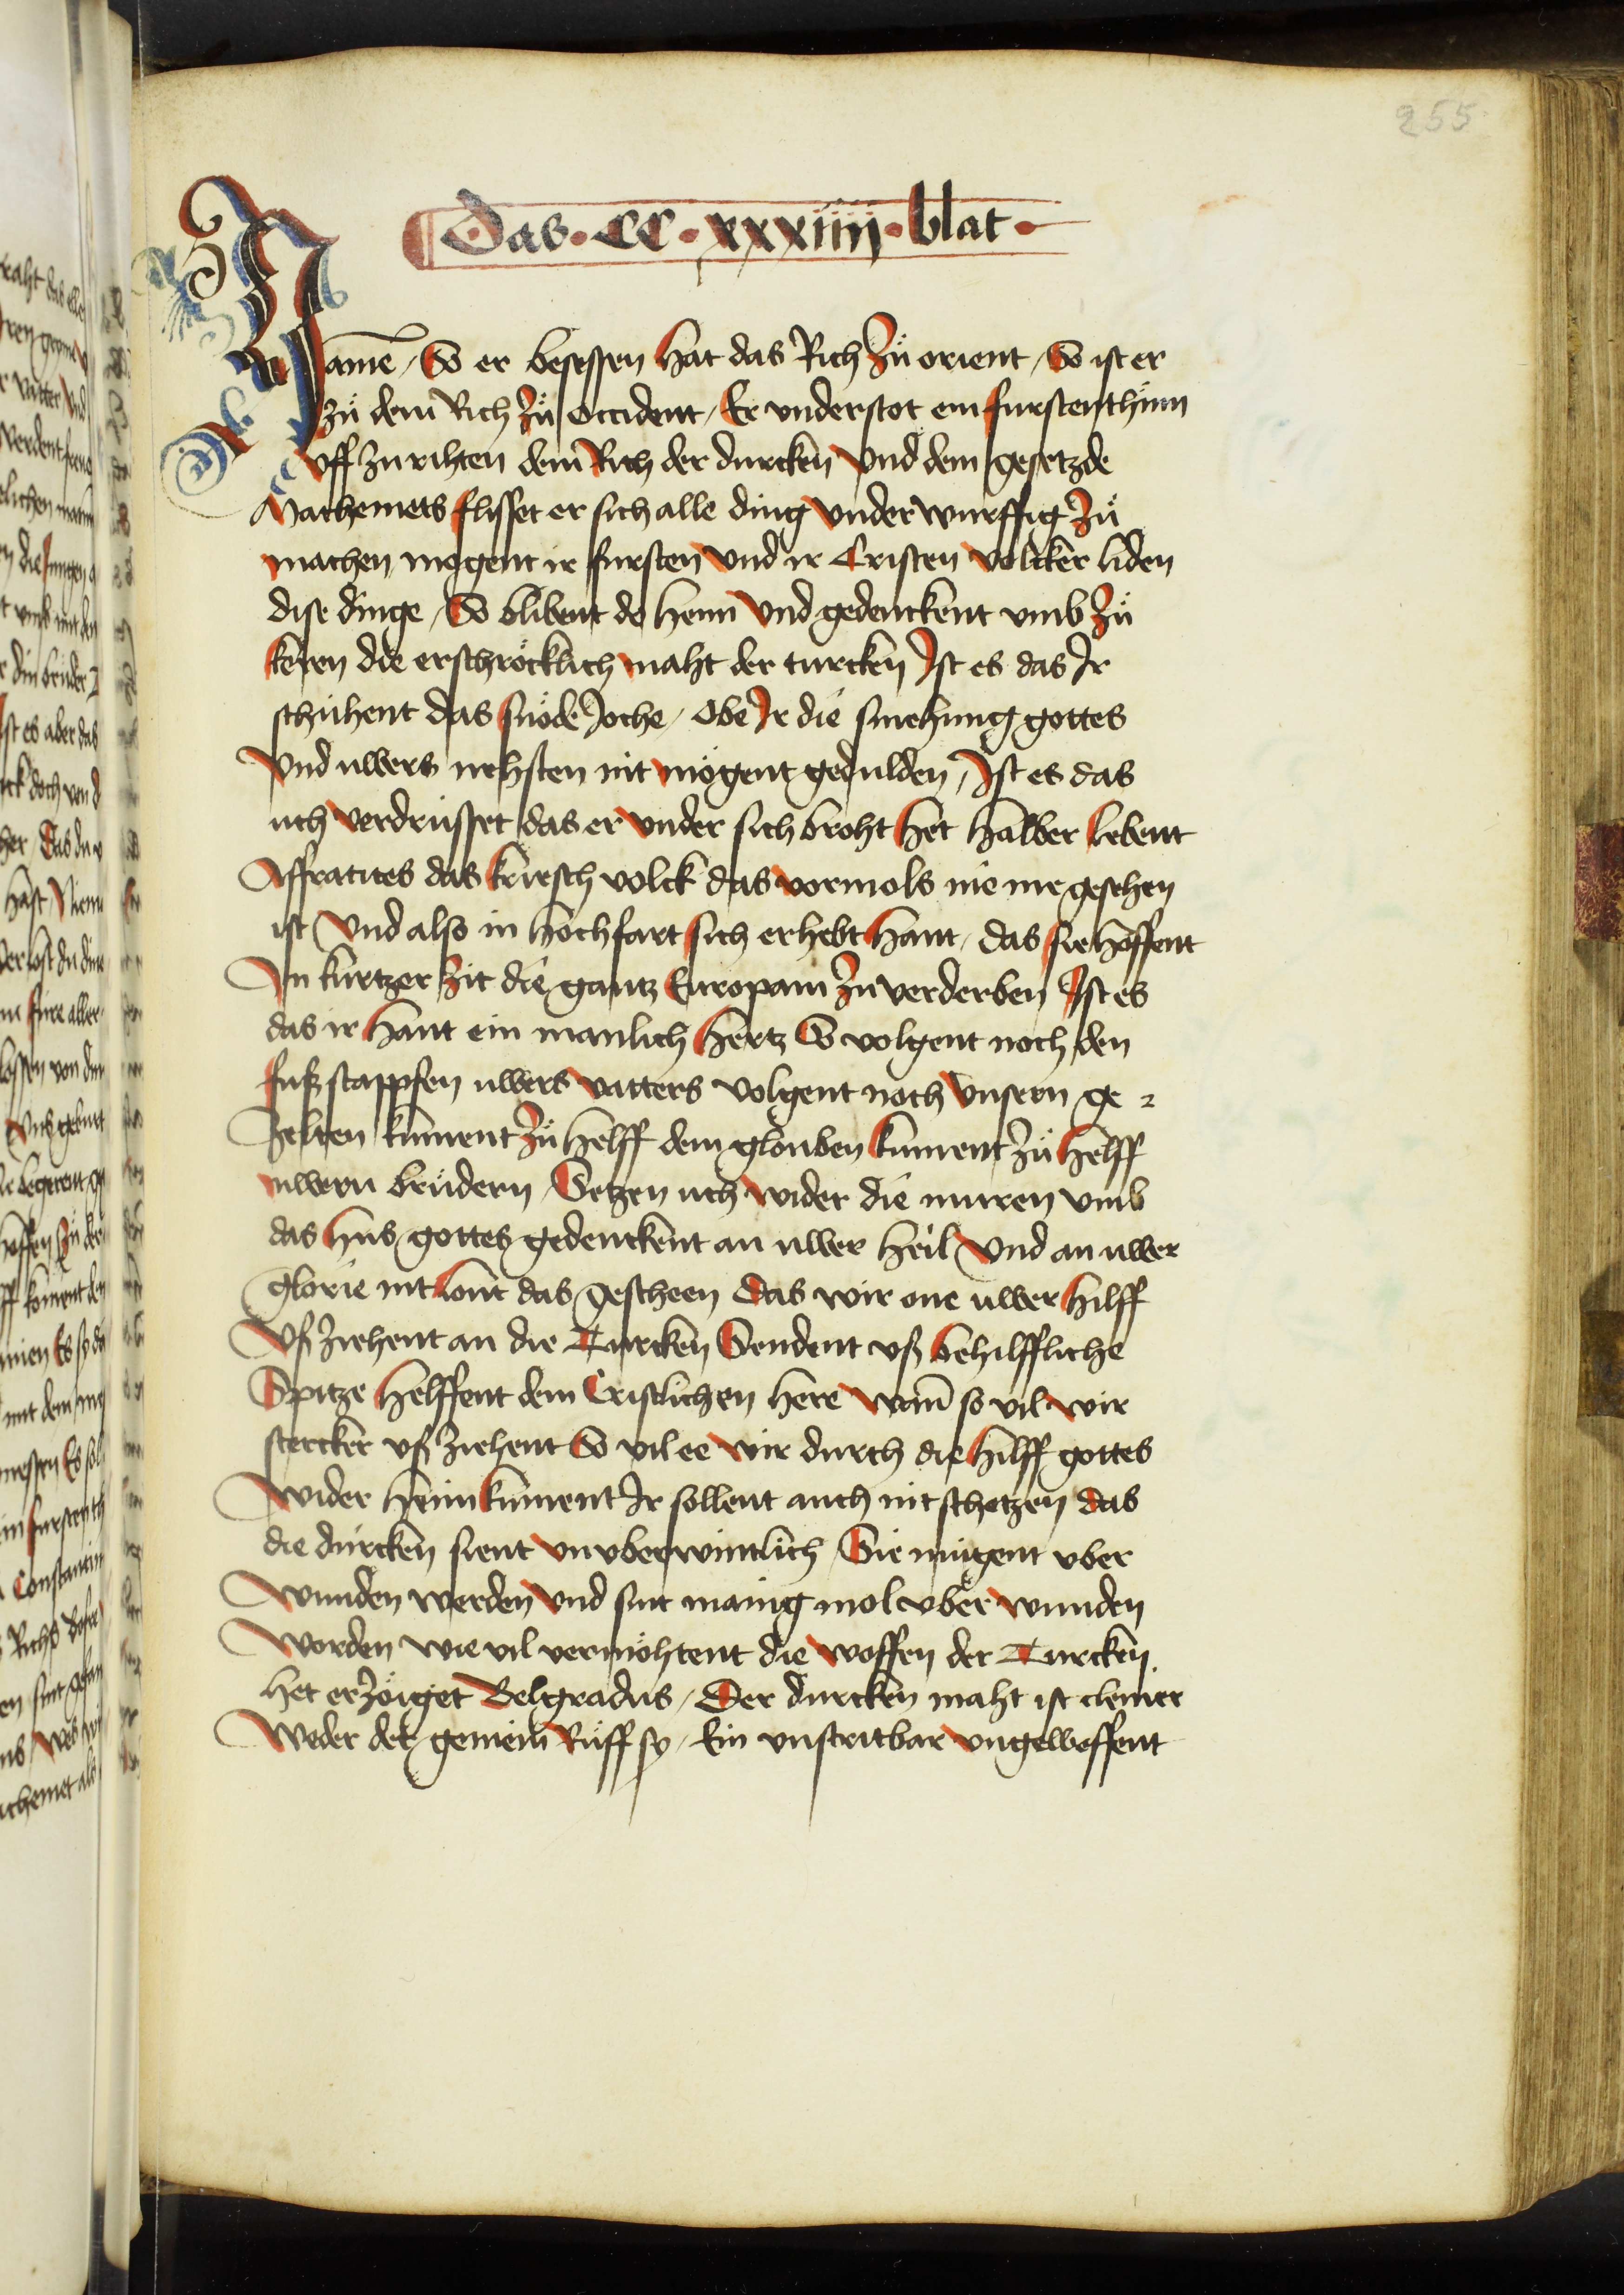 255
Das · CC · xxxiiij · blat ·
Name / So er besessen hat das Rich zů orient / So ist er
zů dem Rich zů Occident / Er vnderstot ein furstenthům
vff zu rihten dem Rich der durcken vnd dem gesetzde
Mathemets flisset er sich alle ding vnder wurffig zů
machen mogent ir fursten vnd ir Cristen volcker liden
dise dinge / So blibent do heim vnd gedenckent vmb zů
keren die erschröcklich maht der turcken Ist es das Ir
schuhent das snöde Joche / Obe Ir die smehung gottes
vnd uwers nehsten nit mögent gedulden / Ist es das
uch verdrusset das er vnder sich broht het halber lebent
Affratites das kriesch volck das vormols nie me gesehen
ist vnd also in hochfart sich erhebt hant / das sie hoffent
In kurtzer zit die gantz Europam zu verderben Ist es
das ir hant ein manlich hertz So volgent noch den
fuß stappfen uwers vatters volgent noch vnsern ge =
zelten kument zů helff dem glouben kument zů helff
uwern brüdern / Setzen uch wider die muren vmb
das hus gottes gedenckent an uwer heil vnd an uwer
glorie nit lont das gescheen das wir one uwer hilff
vß ziehent an die Turcken Sendent vß behilffliche
Spitze helffent dem Cristlichen here wan̄ so vil wir
stercker vß ziehent So vil ee wir durch die hilff gottes
wider heim kument Ir sollent auch nit schetzen das
die durcken sient vnvberwintlich / Sie mügent vber
wunden werden vnd sint manig mol vber wunden
worden wie vil vermöhtent die woffen der Turcken
het erzöiget Belgradus / Der durcken maht ist cleiner
weder der gemein Rüff sy / Ein vnstritbar vngeweffent